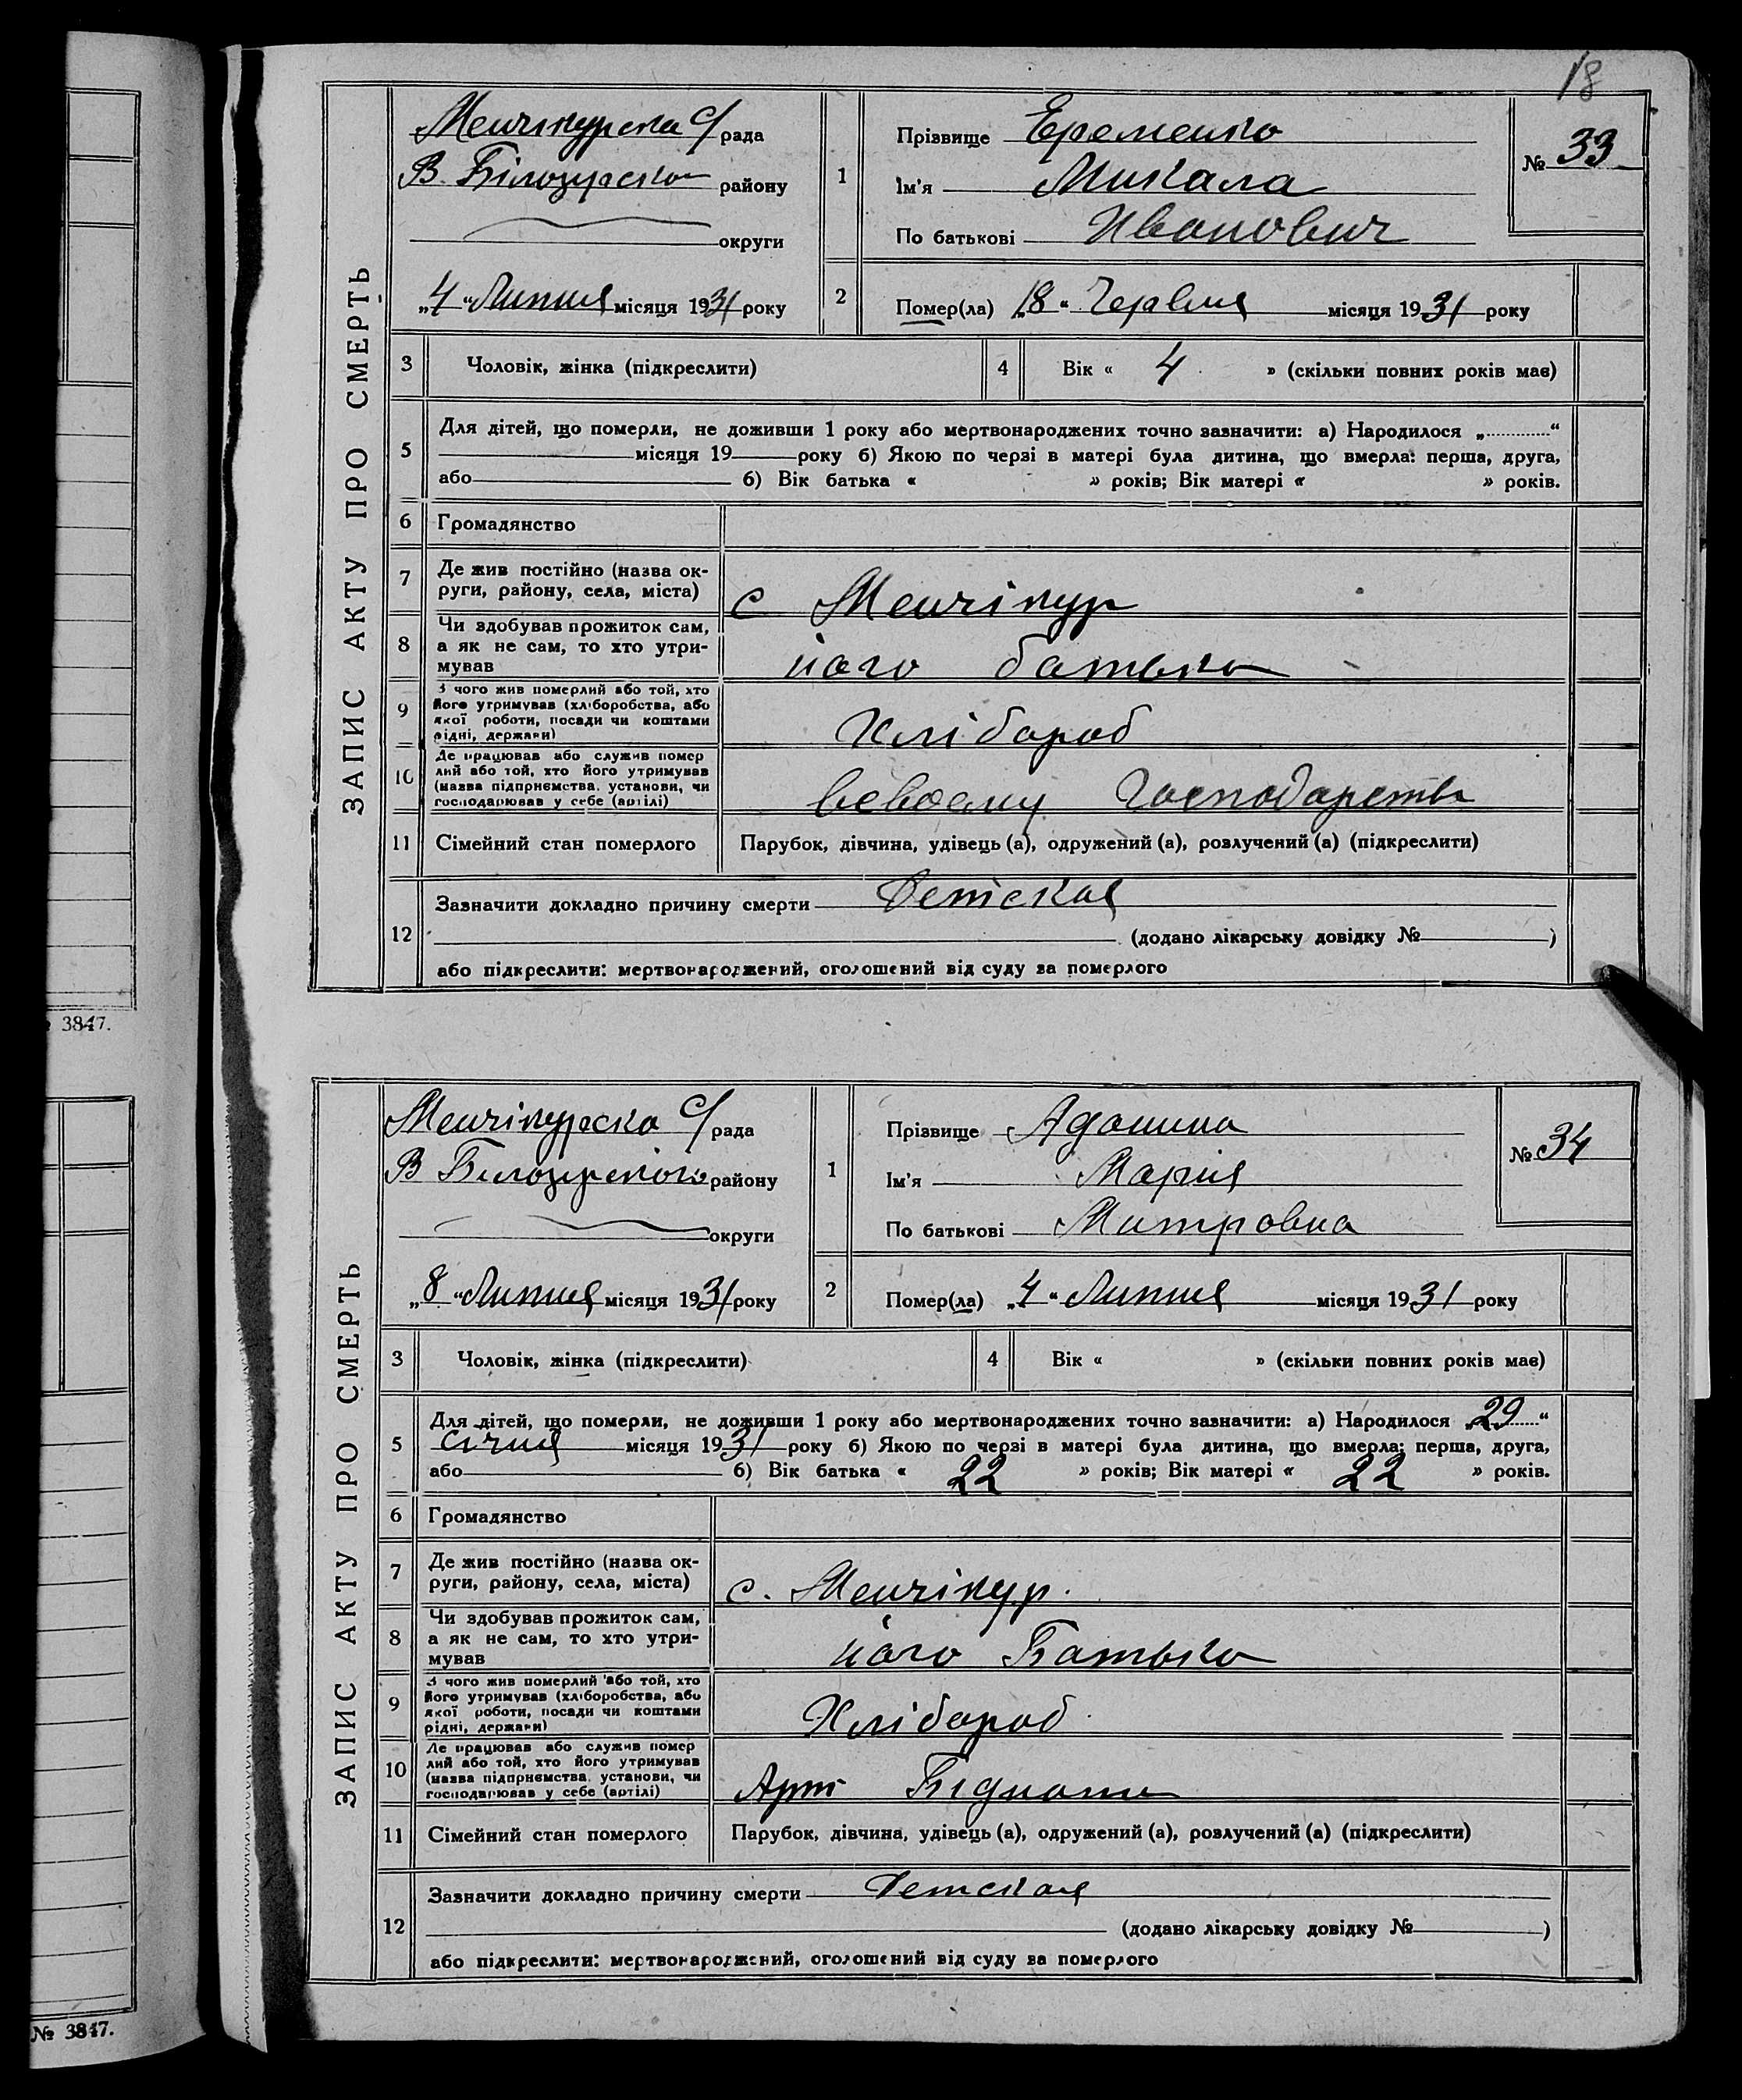 18
ЗАПИС АКТУ ПРО СМЕРТЬ
Менчікурска С/рада
В Білозурсько району
округи
„4“ Липня місяця 1931 року
1
Прізвище Еременко
Ім'я Микала
По батькові Ивонович
№ 33
2
Помер(ла) „18“ Червня місяця 1931 року
3 Чоловік, жінка (підкреслити)
4 Вік « 4 » (скільки повних років має)
5 Для дітей, що померли, не доживши 1 року або мертвонароджених точно зазначити: а) Народилося „ “
місяця 19 року б) Якою по черзі в матері була дитина, що вмерла: перша, друга,
або б) Вік батька « » років; Вік матері « » років.
6 Громадянство
7 Де жив постійно (назва ок-
руги, району, села, міста) с Менчікур
8 Чи здобував прожиток сам,
а як не сам, то хто утри-
мував його батько
9 З чого жив померлий або той, хто
його утримував (хліборобства, або
якої роботи, посади чи коштами
рідні, держави) Хлібороб
10 Де працював або служив помер
лий або той, хто його утримував
(назва підприємства, установи, чи
господарював у себе (артілі) всвоему Господарстві
11 Сімейний стан померлого Парубок, дівчина, удівець (а), одружений (а), розлучений (а) (підкреслити)
12 Зазначити докладно причину смерти Детская
(додано лікарську довідку № )
або підкреслити: мертвонароджений, оголошений від суду за померлого
№ 3847.
ЗАПИС АКТУ ПРО СМЕРТЬ
Менчікурска С/рада
В Білозурского району
округи
„8“ Липня місяця 1931 року
1
Прізвище Адонина
Ім'я Мария
По батькові Митровна
№ 34
2
Помер(ла) „4“ Липня місяця 1931 року
3 Чоловік, жінка (підкреслити)
4 Вік « » (скільки повних років має)
5 Для дітей, що померли, не доживши 1 року або мертвонароджених точно зазначити: а) Народилося „29“
Січня місяця 1931 року б) Якою по черзі в матері була дитина, що вмерла: перша, друга,
або б) Вік батька « 22 » років; Вік матері « 22 » років.
6 Громадянство
7 Де жив постійно (назва ок-
руги, району, села, міста) с. Менчікур.
8 Чи здобував прожиток сам,
а як не сам, то хто утри-
мував його Батько
9 З чого жив померлий або той, хто
його утримував (хліборобства, або
якої роботи, посади чи коштами
рідні, держави) Хлібороб
10 Де працював або служив помер
лий або той, хто його утримував
(назва підприємства, установи, чи
господарював у себе (артілі) Арт
11 Сімейний стан померлого Парубок, дівчина, удівець (а), одружений (а), розлучений (а) (підкреслити)
12 Зазначити докладно причину смерти Детская
(додано лікарську довідку № )
або підкреслити: мертвонароджений, оголошений від суду за померлого
№ 3847.